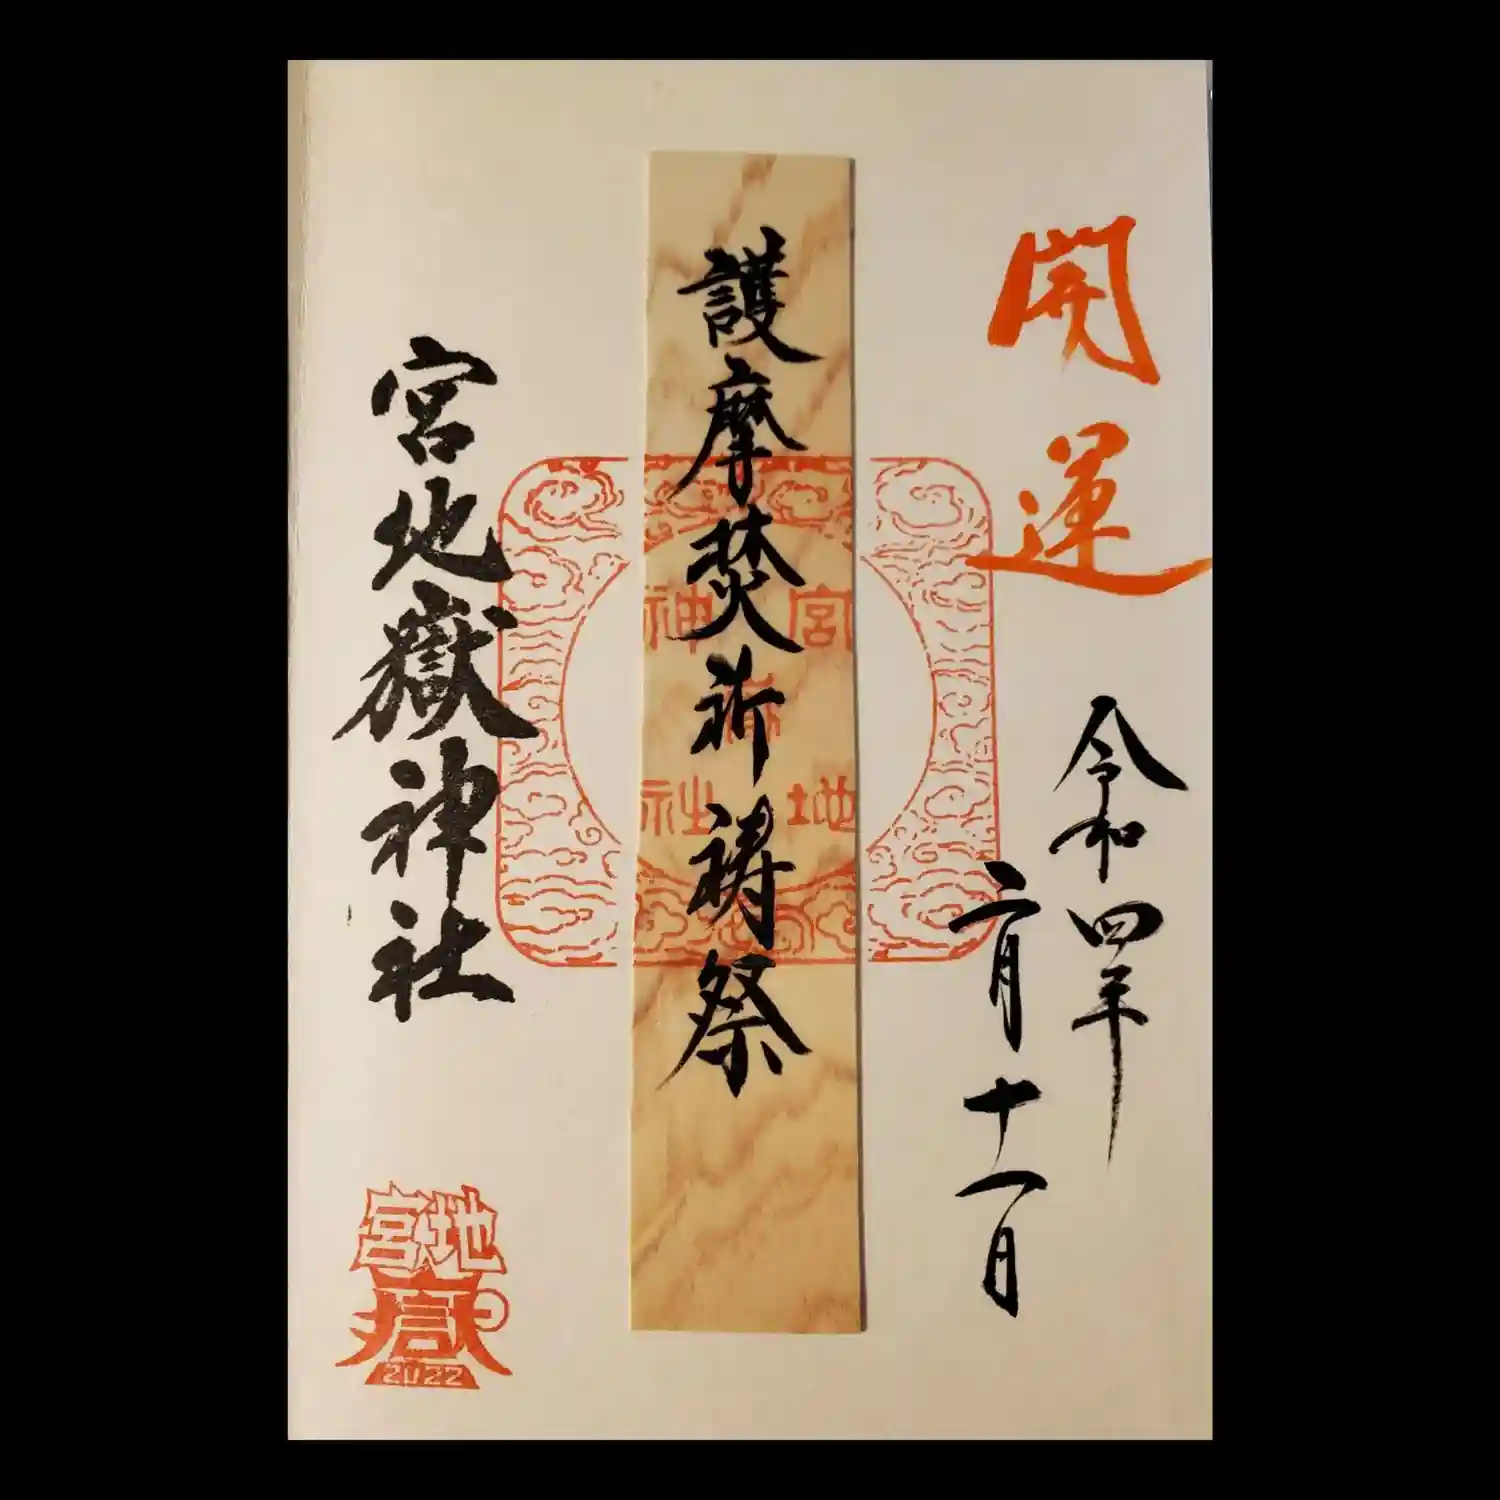 開運
令和四年
二月十一日
護摩焚祈祷祭
宮地嶽神社
宮地
嶽神社
宮地
嶽
2022